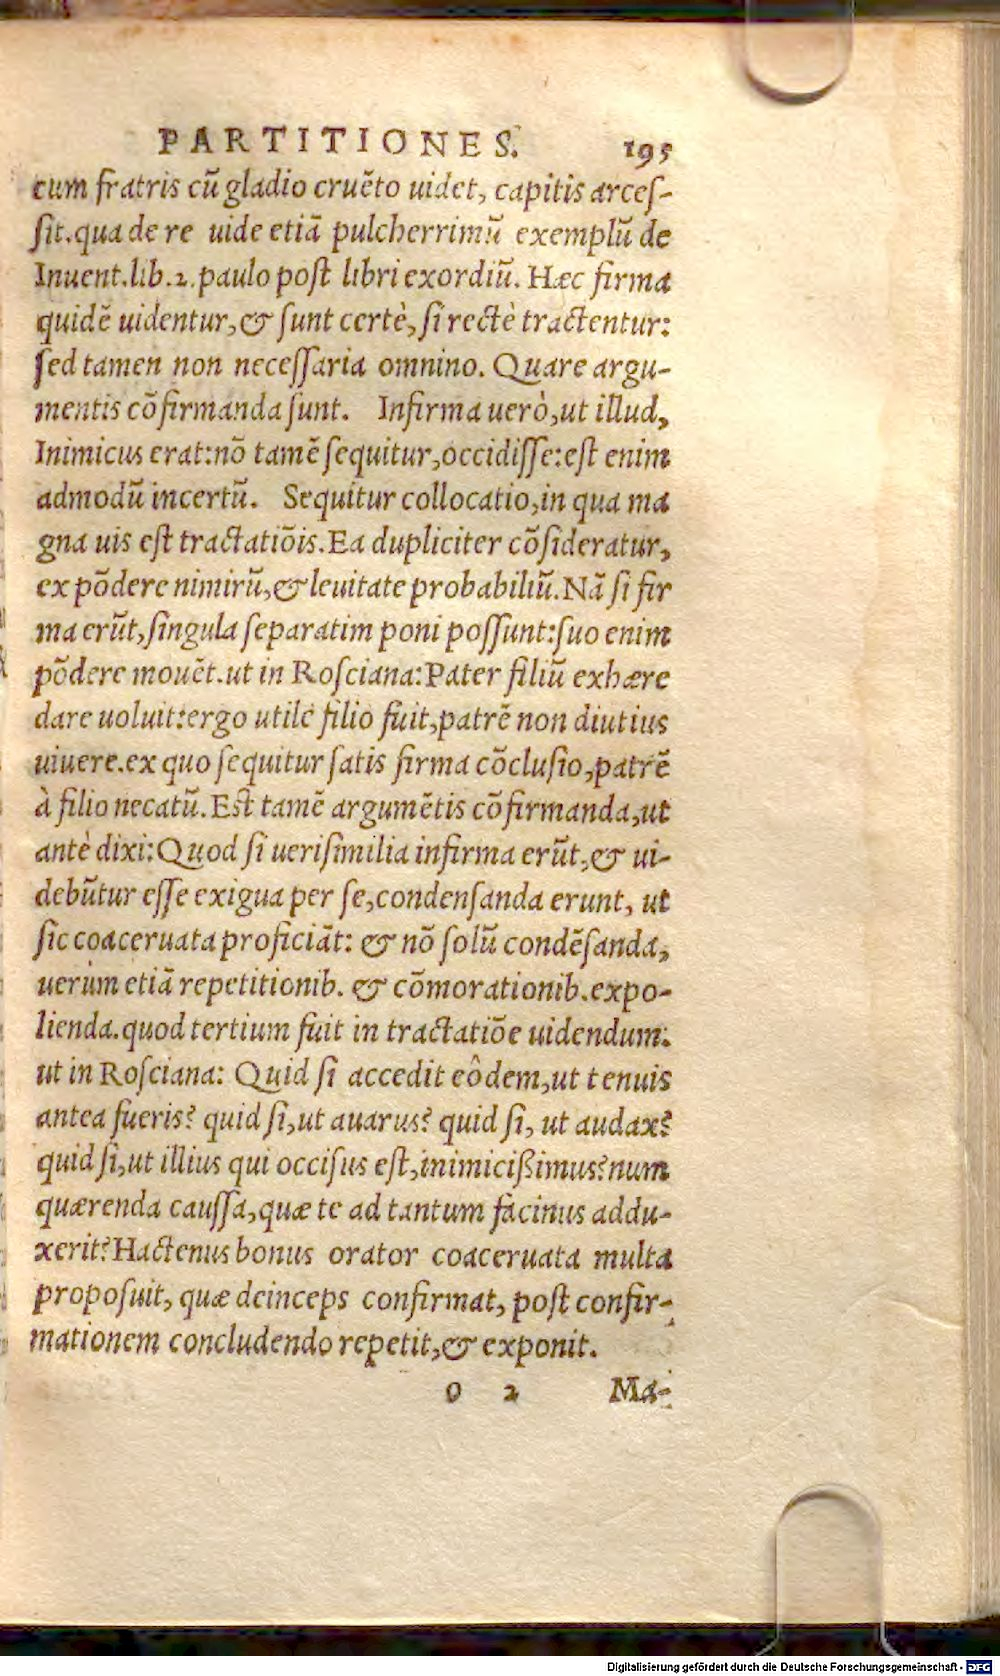 PARTITIONES. 195
cum fratris cũ gladio cruẽto uidet, capitis arceſ-
ſit.qua de re uide etiã pulcherrimũ exemplũ de
Inuent.lib.2.paulo poſt libri exordiũ. Hæc firma
quidẽ uidentur,& ſunt certè, ſi rectè tractentur:
ſed tamen non neceſſaria omnino. Quare argu-
mentis cõfirmanda ſunt. Infirma uerò,ut illud,
Inimicus erat:nõ tamẽ ſequitur,occidiſſe:eſt enim
admodũ incertũ. Sequitur collocatio,in qua ma
gna uis eſt tractatiõis.Ea dupliciter cõſideratur,
ex põdere nimirũ,& leuitate probabiliũ.Nã ſi fir
ma erũt,ſingula ſeparatim poni poſſunt:ſuo enim
põdere mouẽt.ut in Roſciana:Pater filiũ exhære
dare uoluit:ergo utile filio fuit,patrẽ non diutius
uiuere.ex quo ſequitur ſatis firma cõcluſio,patrẽ
à filio necatũ.Eſt tamẽ argumẽtis cõfirmanda,ut
antè dixi:Quod ſi ueriſimilia infirma erũt,& ui-
debũtur eſſe exigua per ſe,condenſanda erunt, ut
ſic coaceruata proficiãt: & nõ ſolũ condẽſanda,
uerùm etiã repetitionib. & cõmorationib.expo-
lienda.quod tertium fuit in tractatiõe uidendum:
ut in Roſciana: Quid ſi accedit eôdem,ut tenuis
antea fueris? quid ſi,ut auarus? quid ſi, ut audax?
quid ſi,ut illius qui occiſus eſt,inimicißimus?num
quærenda cauſſa,quæ te ad tantum facinus addu-
xerit?Hactenus bonus orator coaceruata multa
propoſuit, quæ deinceps confirmat, poſt confir-
mationem concludendo repetit,& exponit.
o 2 Ma-
Digitalisierung gefördert durch die Deutsche Forschungsgemeinschaft - DFG